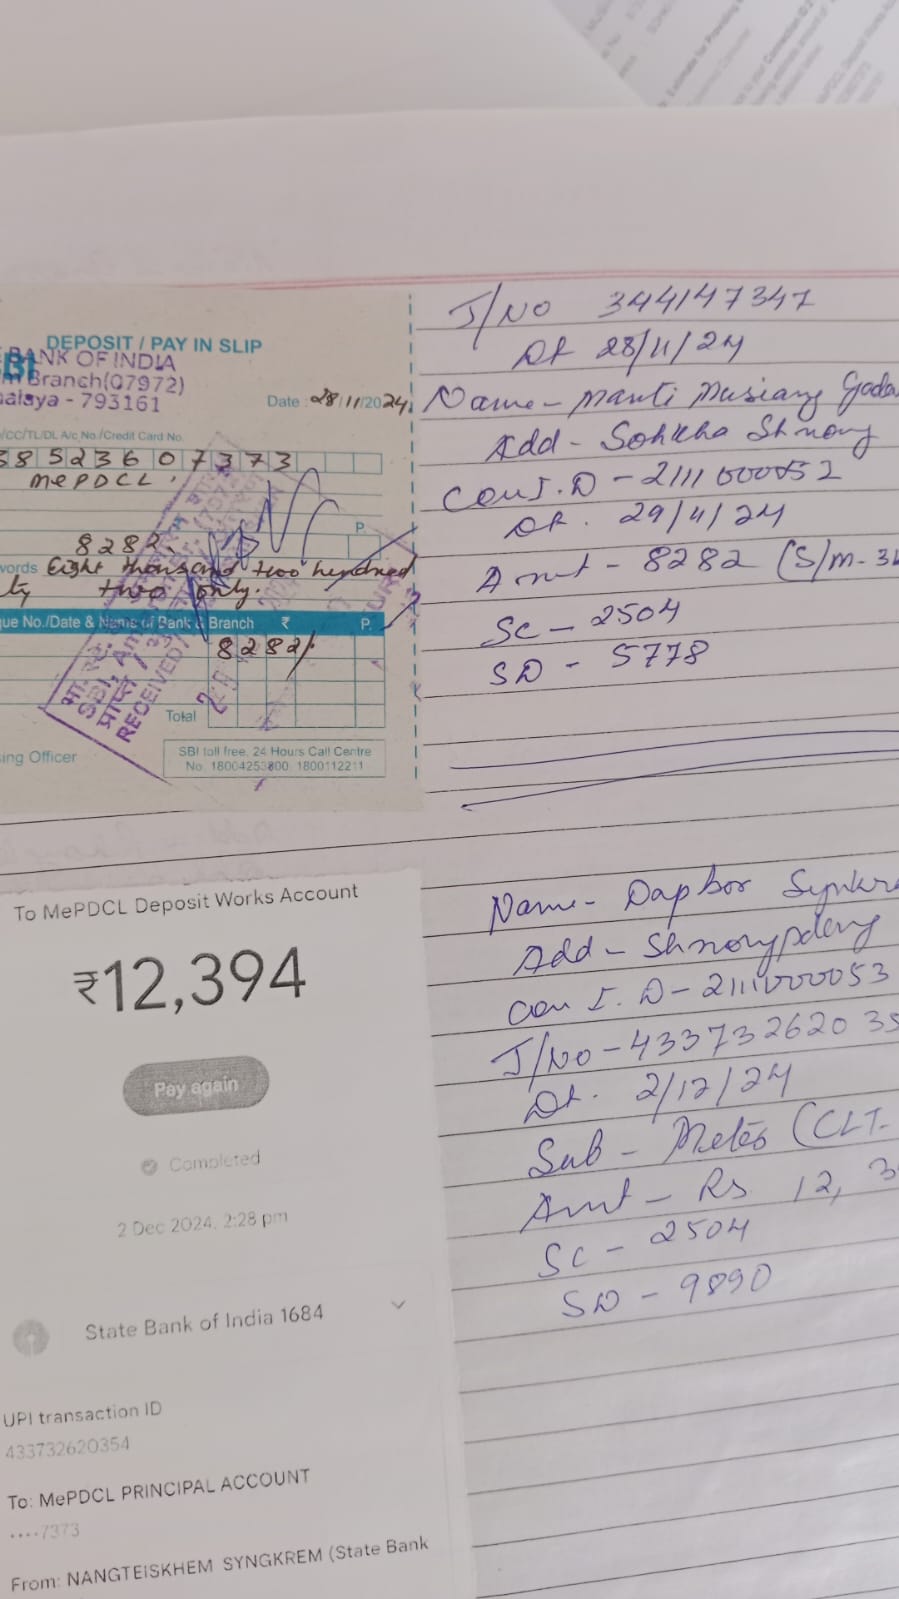 DEPOSIT / PAY IN SLIP
BANK OF INDIA
Branch(07972)
alaya - 793161
Date : 28/11/2024
/CC/TL/DL A/c No./Credit Card No.
38523607373
MePDCL.
P.
8282
words Eight thousand two hundred
ty two only.
que No./Date & Name of Bank & Branch ₹ P.
8282/
SBI, Am
RECEIVED
Total
ing Officer
SBI toll free, 24 Hours Call Centre
No. 18004253800, 1800112211
J/No 344147347
Dt 28/11/24
Name - Manti Musiang
Add - Sohkha Shnong
Con I.D - 2111000052
Dt. 29/4/24
Amt - 8282 (S/m-
SC - 2504
SD - 5778
To MePDCL Deposit Works Account
₹12,394
Pay again
Completed
2 Dec 2024, 2:28 pm
State Bank of India 1684
UPI transaction ID
433732620354
To: MePDCL PRINCIPAL ACCOUNT
....7373
From: NANGTEISKHEM SYNGKREM (State Bank
Name - Dapbor Synkre
Add - Shnongpdeng
Con I.D - 2111000053
J/No - 43373262035
Dt. 2/12/24
Sub - Meter (CLT-
Amt - Rs 12,3
SC - 2504
SD - 9890